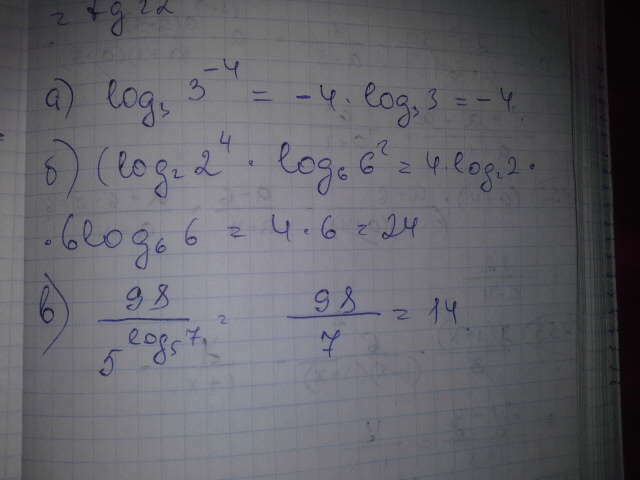 а) log₃ 3⁻⁴ = -4 · log₃ 3 = -4.
б) (log₂ 2⁴ · log₆ 6² = 4 · log₂ 2 ·
· 6 log₆ 6 = 4 · 6 = 24
в) 98 / 5^(log₅ 7) = 98 / 7 = 14